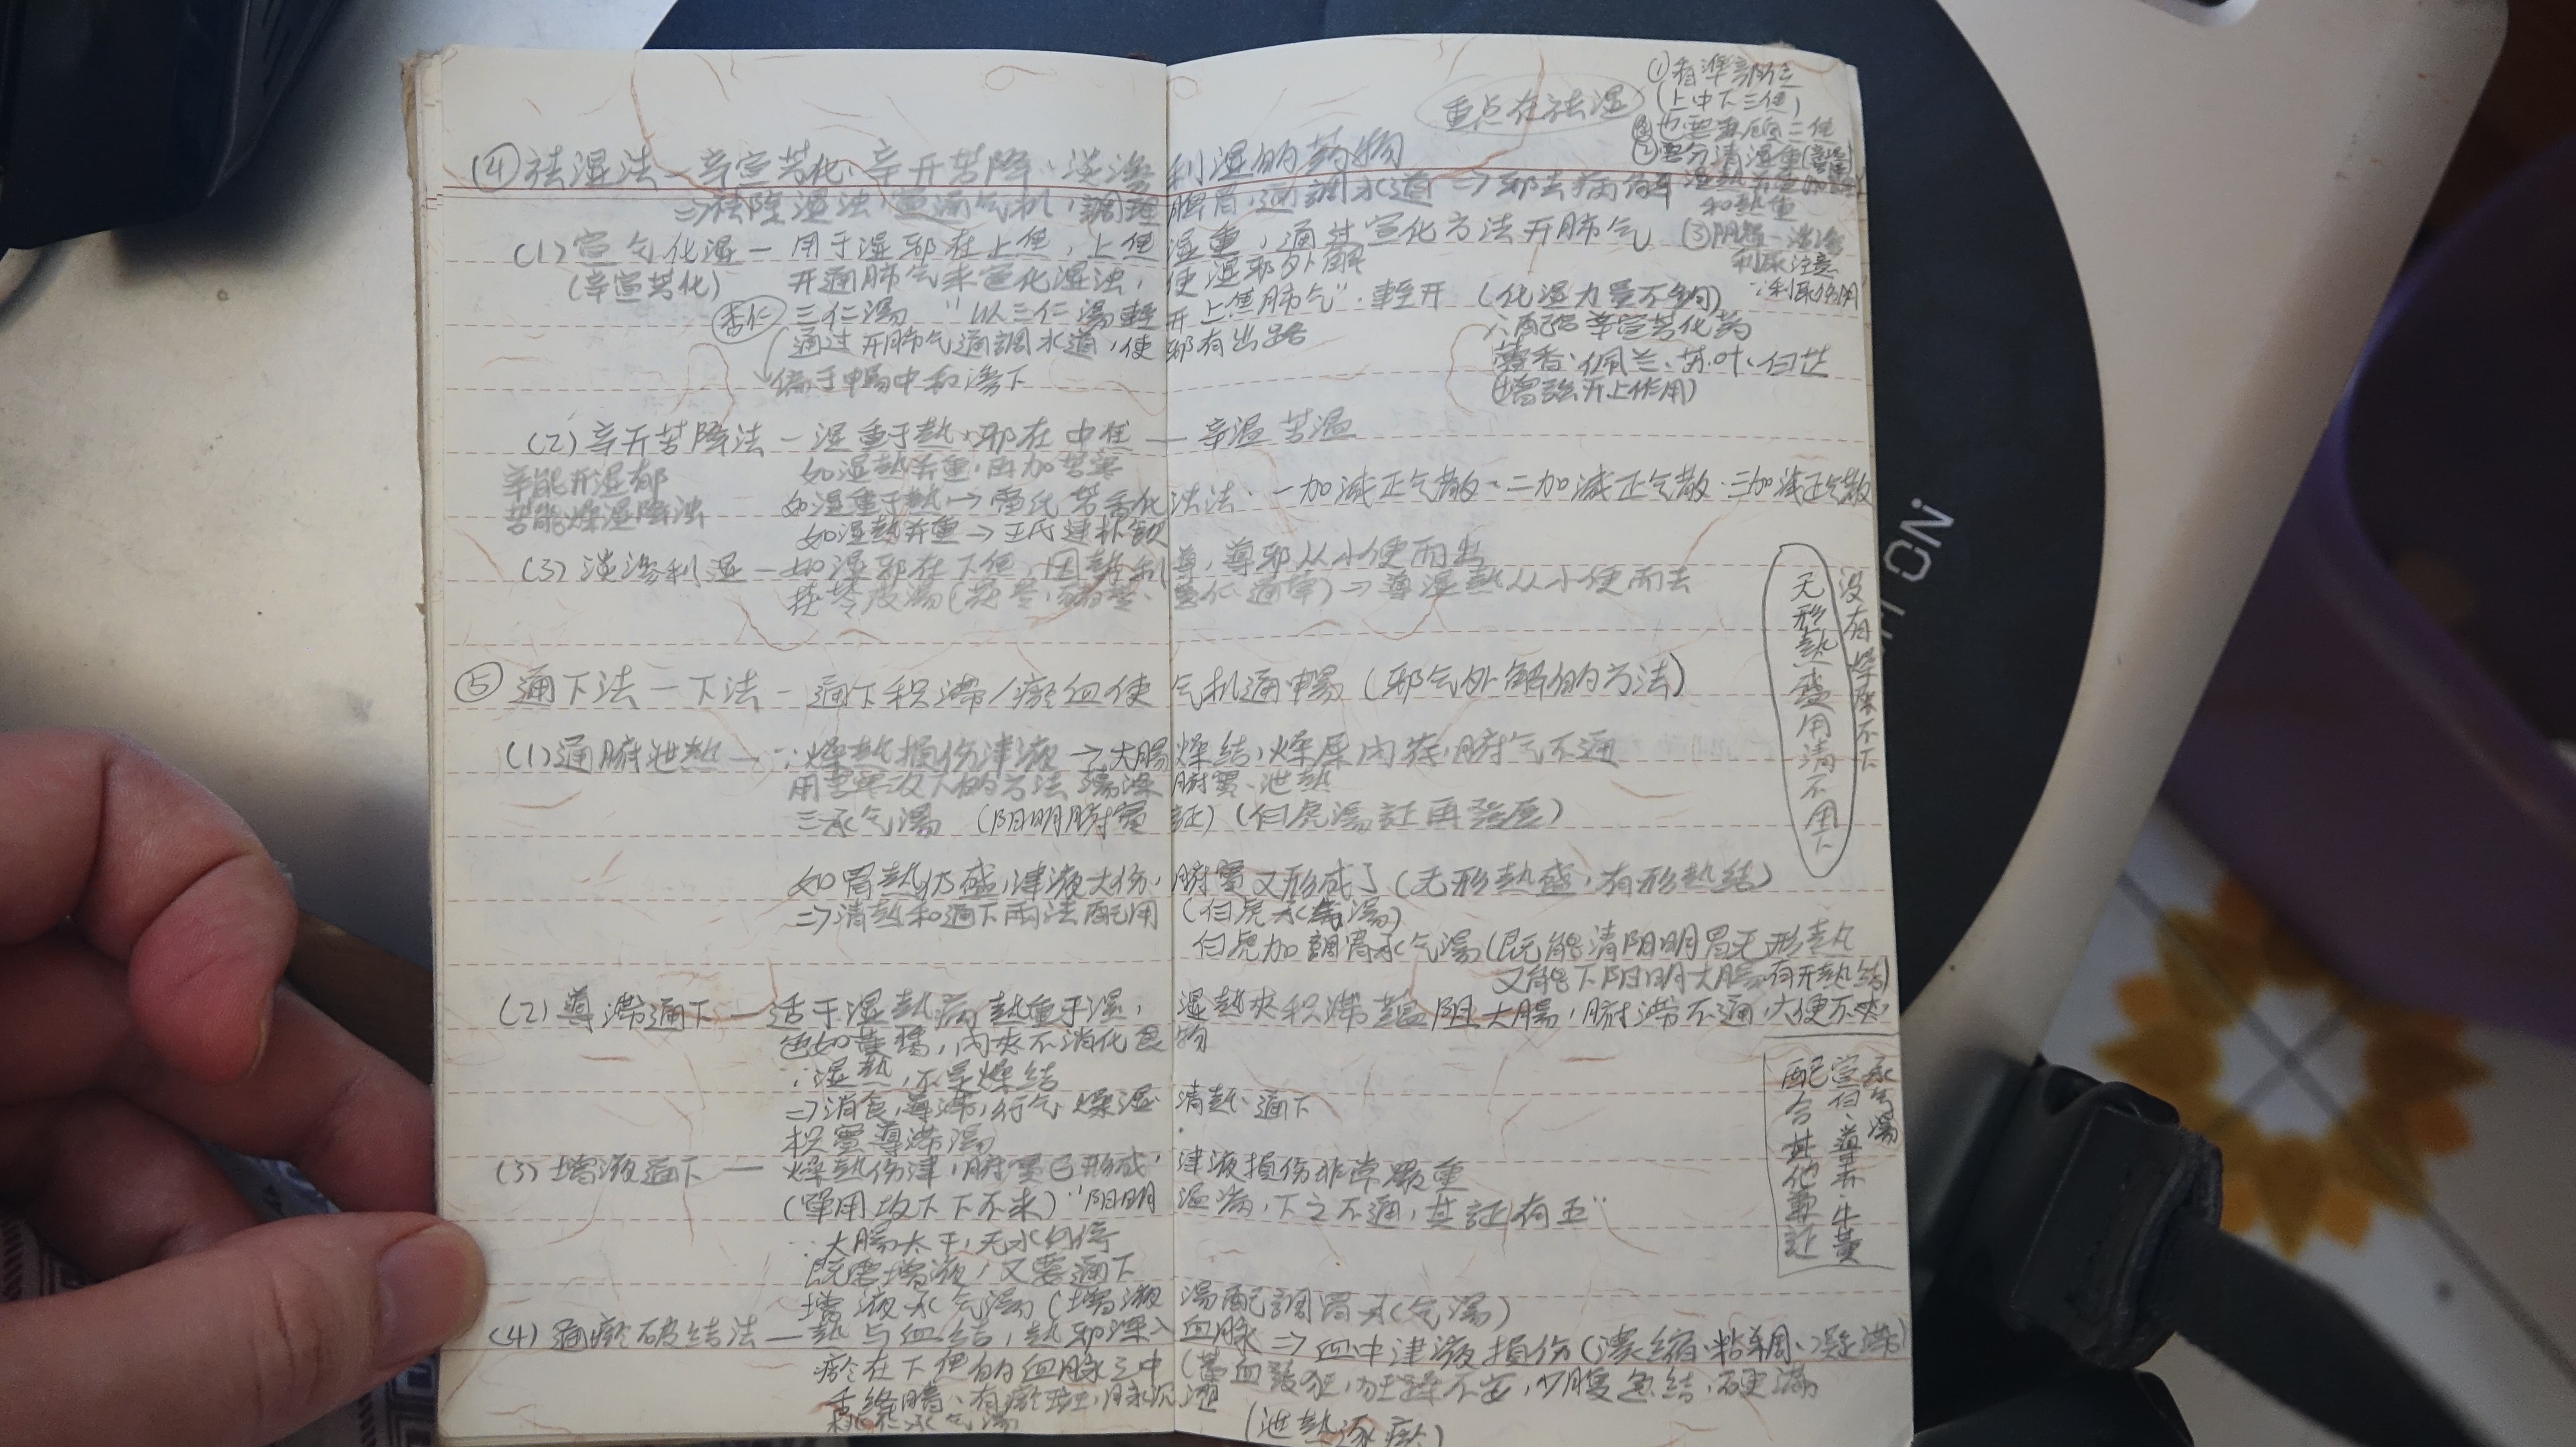 重点在祛湿
①看準部位
(上中下三焦)
也要兼顾三焦
②要分清湿重
湿热并重
和热重
③阴虚一淡渗
利尿注意
∵利尿伤阴
④祛湿法一辛宣芳化、辛开苦降、淡渗利湿的药物
⇒祛除湿浊,宣通气机,調理脾胃,通調水道 ⇒邪去病解
(1)宣气化湿一用于湿邪在上焦,上焦湿重,通过宣化方法开肺气
(辛宣芳化) 开通肺气来宣化湿浊,使湿邪外解
杏仁 三仁湯 "以三仁湯輕开上焦肺气"·輕开 (化湿力量不夠)
通过开肺气通調水道,使邪有出路
偏于暢中和滲下
∴配合辛宣芳化药
藿香、佩兰、苏叶、白芷
(增強开上作用)
(2)辛开苦降法一湿重于熱,邪在中焦 — 辛温苦温
辛能开湿郁
苦能燥湿降浊
如湿熱并重,再加苦寒
如湿重于熱→雷氏芳香化浊法、一加減正气散、二加減正气散、三加減正气散
如湿熱并重→王氏連朴飲
(3)淡滲利湿一如湿邪在下焦,因勢利導,導邪从小便而出
茯苓皮湯(茯苓、豬苓、薏仁、通草)⇒導湿熱从小便而去
没有燥屎不下
无形熱盛用清不用下
⑤通下法一下法一通下积滯/瘀血使气机通暢(邪气外解的方法)
(1)通腑泄熱一∵燥熱損伤津液→大腸燥结,燥屎内荐,腑气不通
用苦寒攻下的方法蕩滌腑實、泄熱
三承气湯 (阳明腑實証)(白虎湯証再發展)
如胃熱仍盛,津液大伤,腑實又形成了(无形熱盛,有形熱结)
⇒清熱和通下兩法配用 (白虎承气湯)
白虎加調胃承气湯(既能清阳明胃无形熱
又能下阳明大腸有形熱结)
(2)導滯通下一适于湿熱病熱重于湿,湿熱夾积滯蕴阻大腸,腑滯不通,大便不爽,
色如黄醬,内夾不消化食物
∵湿熱,不是燥结
⇒消食,導滯,行气、燥湿、清熱、通下
枳實導滯湯
承气湯
宣白、導赤、牛黃
配合其他兼証
(3)增液通下 — 燥熱伤津,腑實已形成,津液損伤非常嚴重
(單用攻下下不来)"阳明温病,下之不通,其証有五"
∵大腸太干,无水行停
既要增液,又要通下
增液承气湯(增液湯配調胃承气湯)
(4)通瘀破结法一熱与血结,熱邪深入血脉⇒血中津液損伤(濃縮、粘稠、凝滯)
瘀在下焦的血脉之中(蓄血發狂,狂躁不安,少腹急结,硬满
舌絳暗、有瘀斑,脉沉澀
桃仁承气湯 (泄熱逐瘀)